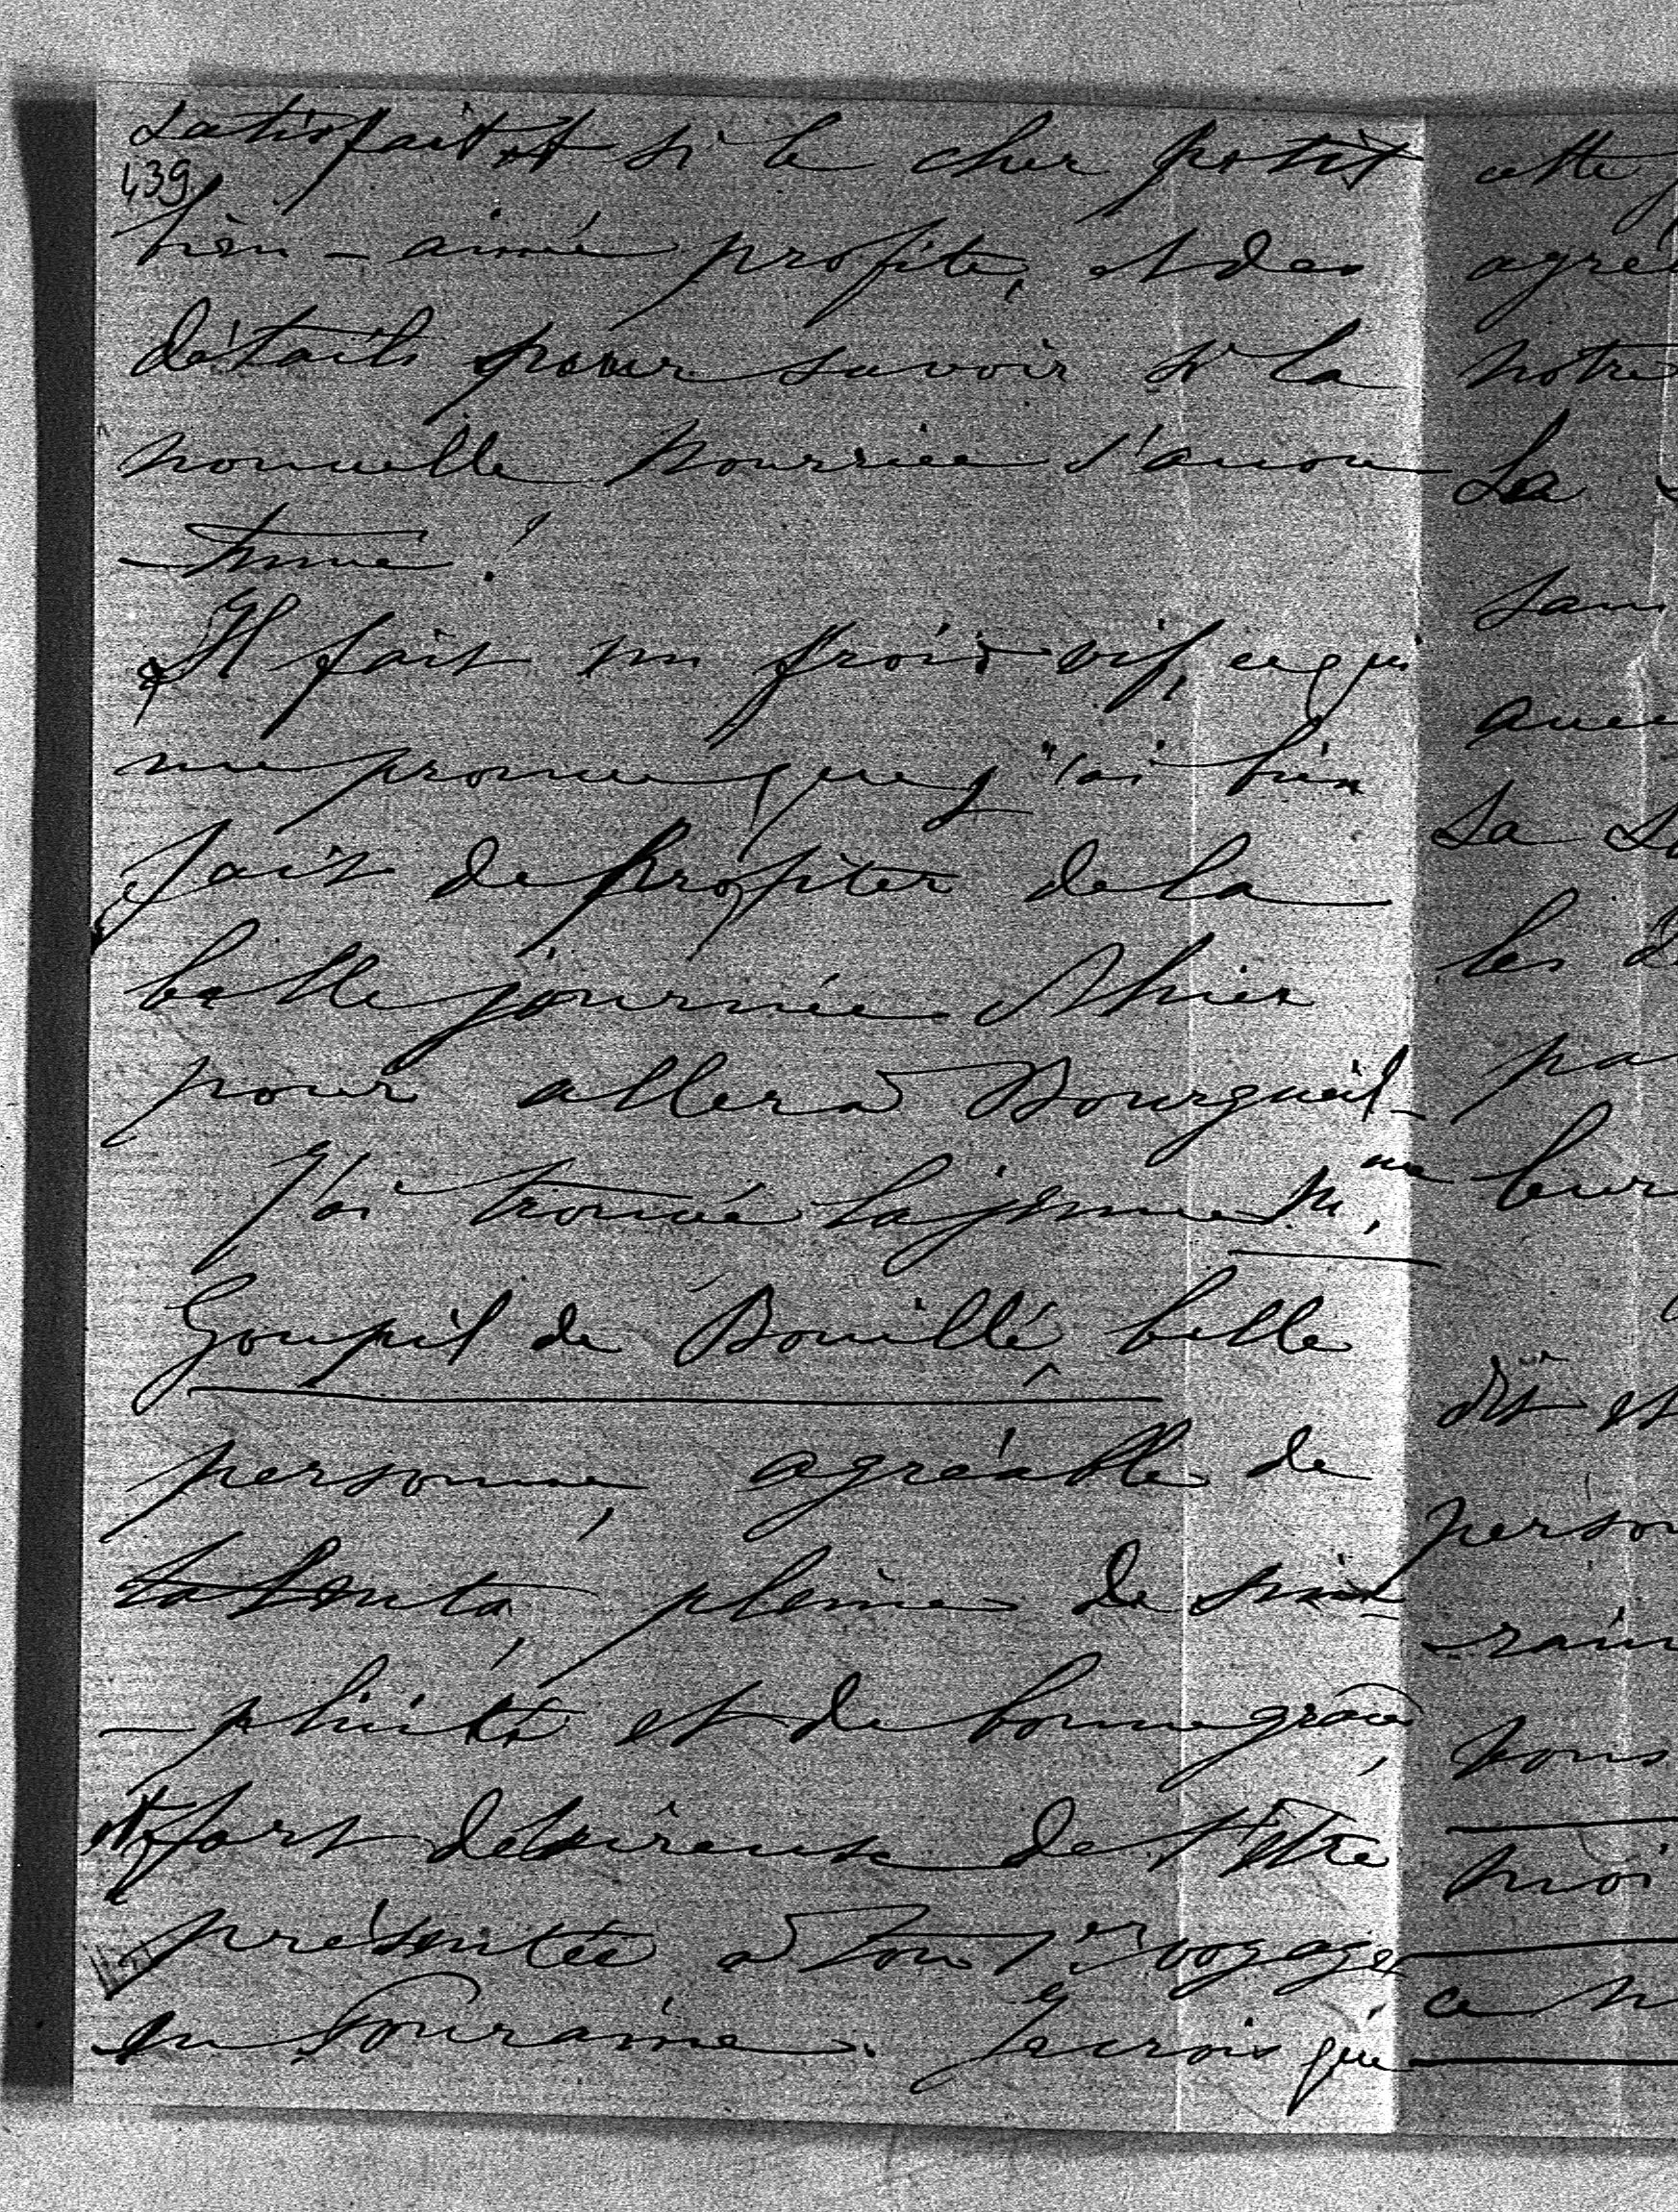 satisfait et si le cher petit
439
bien-aimé profite, et des
détails pour savoir si la
nouvelle nourrice s'accou
-tume!
Il fait un froid vif, ce qui
me prouve que j'ai bien
fait de profiter de la
belle journée d'hier
pour aller à Bourgueil_
J'ai trouvé la jeune M.me
Goupil de Bouillé, belle
personne, agréable de
pleine de sim
-plicité et de bonne grâce,
et fort désireuse de t'être
présentée à ton 1er voyage
en Touraine. Je crois que
cette
agré
notre
La
sans
avec
Sa
les
pa
leur
dit et
person
-rain
vous
moi
ce